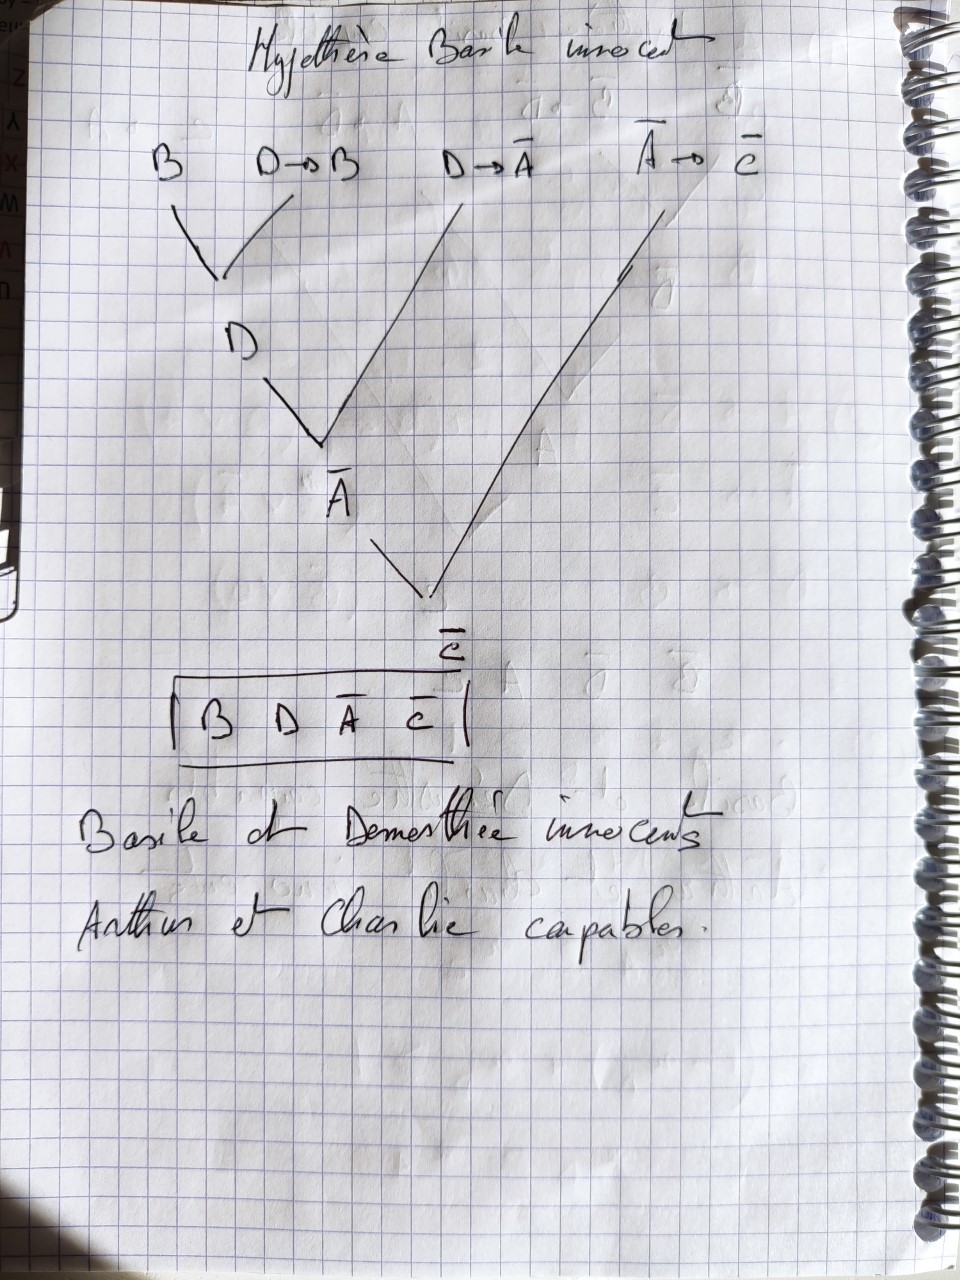 Hypothèse Basile innocent
B D→B D→A̅ A̅→C̅
D
A̅
C̅
B D A̅ C̅
Basile et Demosthée innocents
Arthur et Charlie coupables.